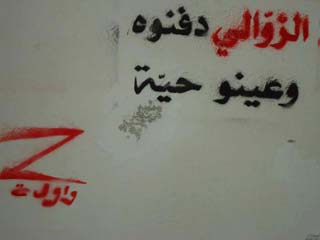 الزوّالي دفنوه
وعينو حيّة
زواولة